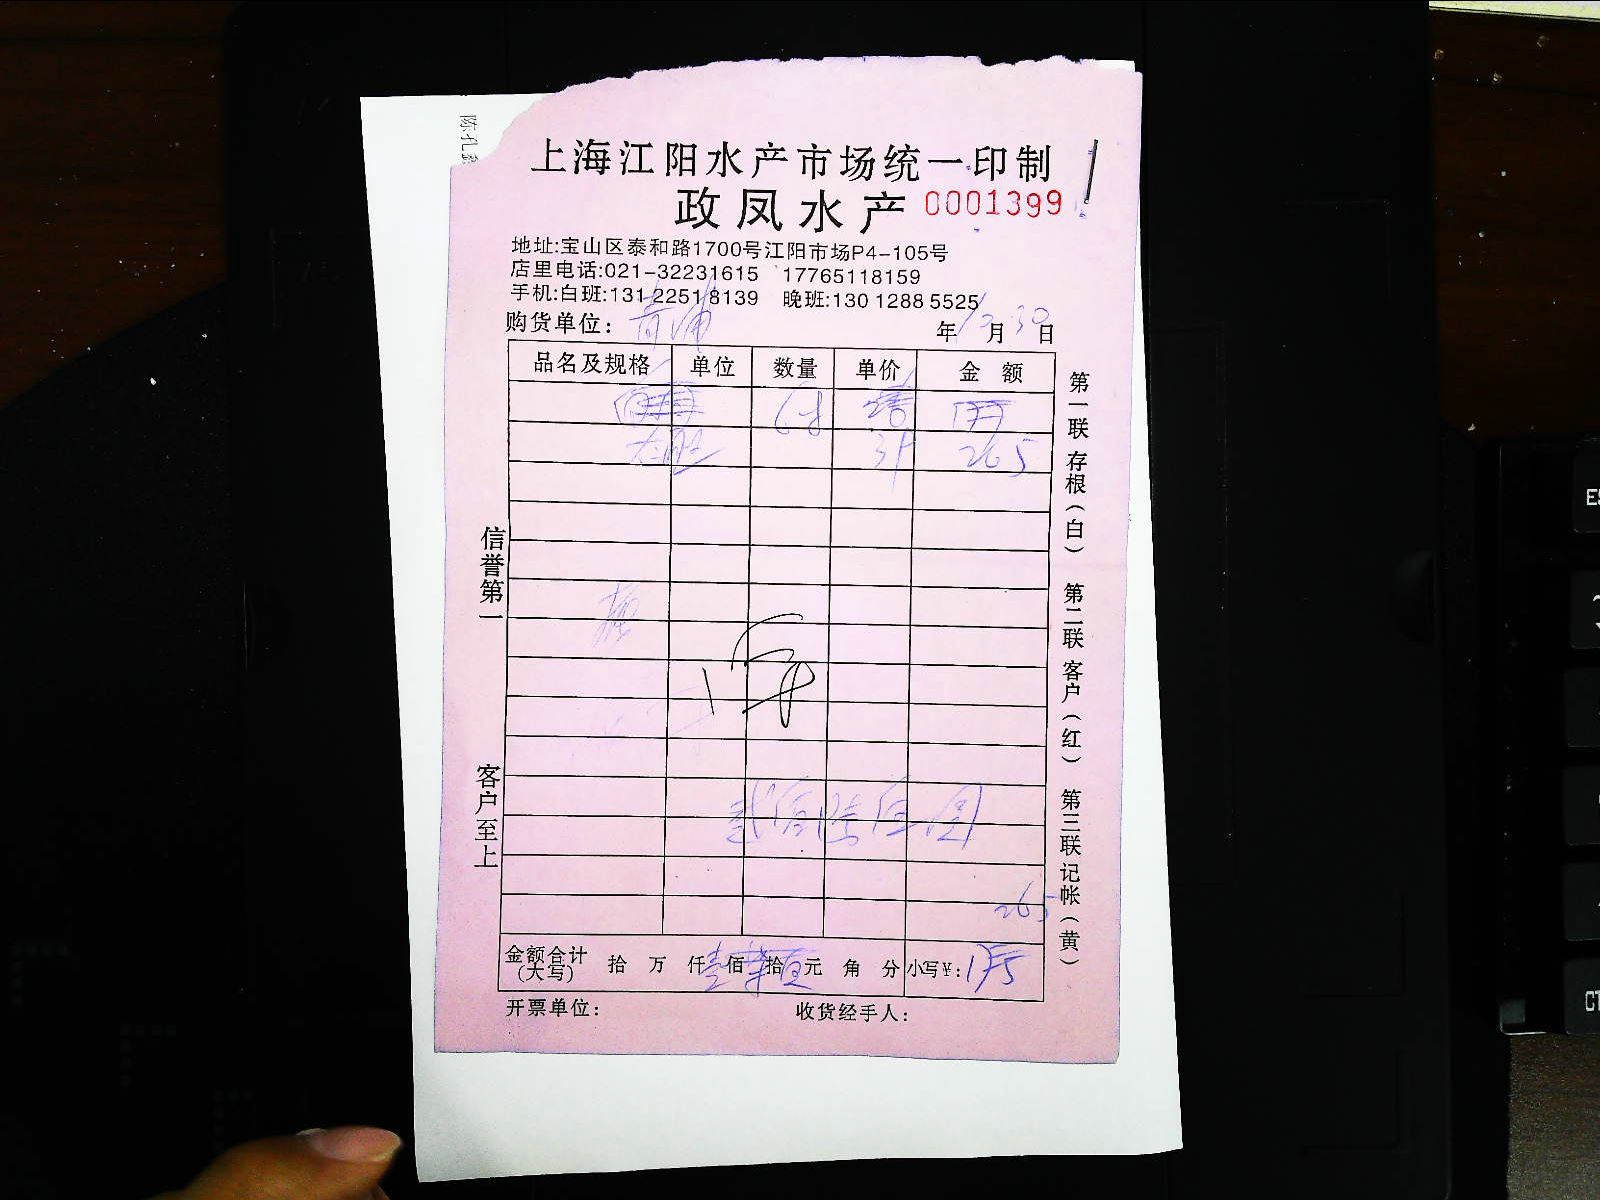 陈孔
上海江阳水产市场统一印制
政凤水产 0001399
地址:宝山区泰和路1700号江阳市场P4-105号
店里电话:021-32231615 17765118159
手机:白班:131 2251 8139 晚班:130 1288 5525
购货单位: 青浦 年 12 月 30 日
品名及规格 单位 数量 单价 金额
265
信誉第一
客户至上
第一联存根(白) 第二联客户(红) 第三联记帐(黄)
265
金额合计(大写) 拾 万 仟 佰 拾 元 角 分 小写¥:
开票单位: 收货经手人: